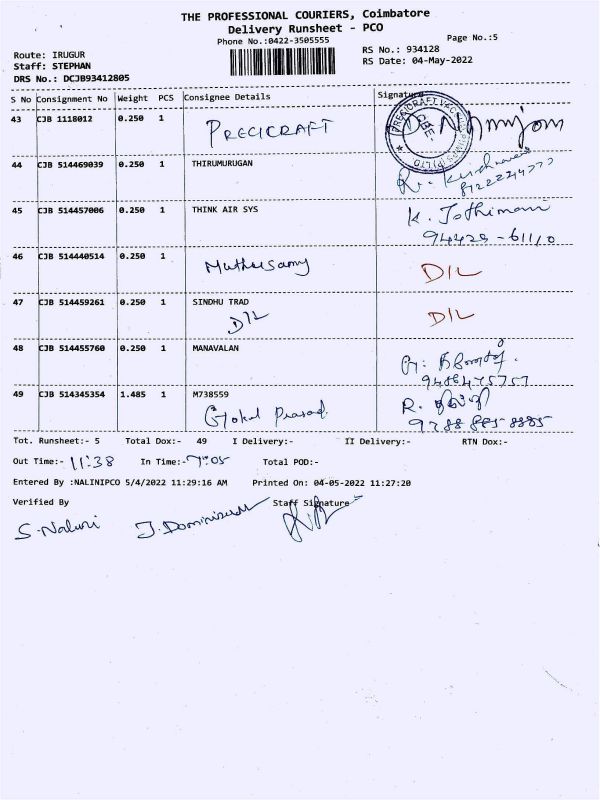 THE PROFESSIONAL COURIERS, Coimbatore
Delivery Runsheet - PCO
Phone No.:0422-3505555
Page No.:5
Route: IRUGUR
Staff: STEPHAN
DRS No.: DCJB93412805
RS No.: 934128
RS Date: 04-May-2022
S No Consignment No Weight PCS Consignee Details Signature
43 CJB 1118012 0.250 1 PRECICRAFT
44 CJB 514469039 0.250 1 THIRUMURUGAN
45 CJB 514457006 0.250 1 THINK AIR SYS K. Jothimani
94429-61110
46 CJB 514440514 0.250 1 Muthusamy D/L
47 CJB 514459261 0.250 1 SINDHU TRAD D/L
D/L
48 CJB 514455760 0.250 1 MANAVALAN
9486475757
49 CJB 514345354 1.485 1 M738559 R.
Gokul Prasad 9788 885 8885
Tot. Runsheet:- 5 Total Dox:- 49 I Delivery:- II Delivery:- RTN Dox:-
Out Time:- 11:38 In Time:- 7:05 Total POD:-
Entered By :NALINIPCO 5/4/2022 11:29:16 AM Printed On: 04-05-2022 11:27:20
Verified By Staff Signature
S. Nalini